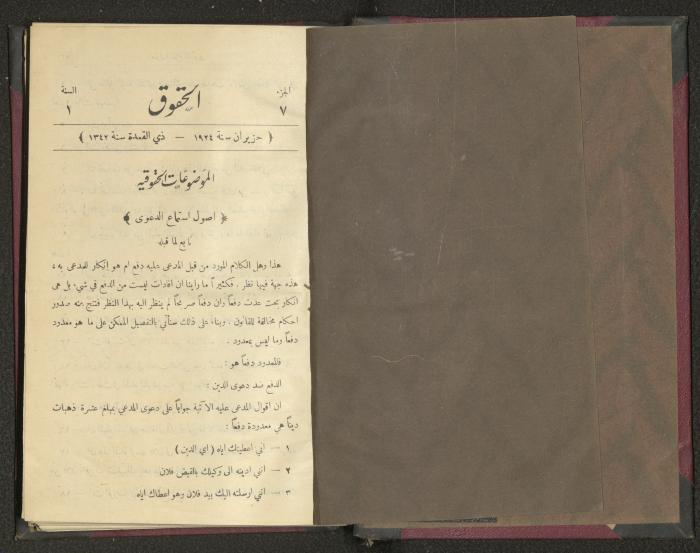 الجزء
٧
الحقوق
السنة
١
﴿ حزيران سنة ١٩٢٤ — ذي القعدة سنة ١٣٤٢ ﴾
الموضوعات الحقوقية
﴿ اصول استماع الدعوى ﴾
تابع لما قبله
هذا وهل الكلام المورد من قبل المدعى عليه دفع ام هو انكار للمدعى به ،
هذه جهة فيها نظر . فكثيراً ما رأينا ان افادات ليست من الدفع في شيء بل هي
انكار بحت عدت دفعاً وان دفعاً صريحاً لم ينظر اليه بهذا النظر فنتج منه صدور
احكام مخالفة للقانون . وبناء على ذلك سنأتي بالتفصيل الممكن على ما هو معدود
دفعاً وما ليس بمعدود .
فالمعدود دفعاً هو :
الدفع ضد دعوى الدين :
ان اقوال المدعى عليه الآتية جواباً على دعوى المدعي بمبلغ عشرة ذهبات
ديناً هي معدودة دفعاً :
١ — انني اعطيتك اياه ( اي الدين )
٢ — انني اديته الى وكيلك بالقبض فلان
٣ — انني ارسلته اليك بيد فلان وهو اعطاك اياه